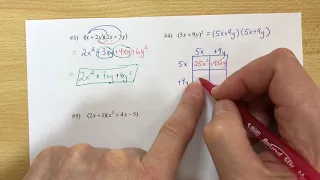 #3) (x+2y)(2x+3y)
= 2x²+3xy+4xy+6y²
2x²+7xy+6y²
#4) (5x+9y)² = (5x+9y)(5x+9y)
5x +9y
5x 25x² +45xy
+9y
#5) (2x+3)(x²+4x-5)
BIC Round Stic